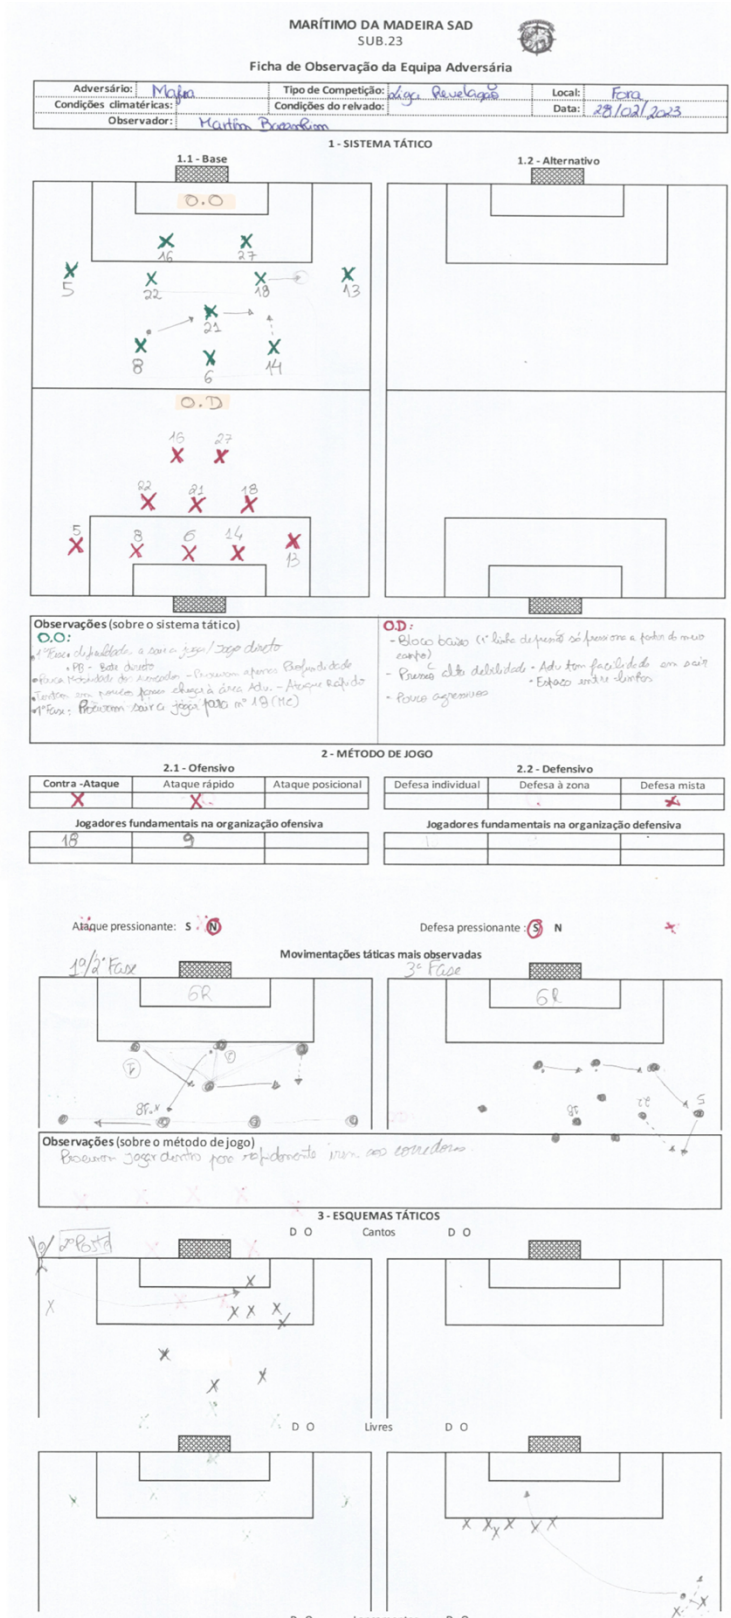 MARÍTIMO DA MADEIRA SAD
SUB.23
Ficha de Observação da Equipa Adversária
Adversário: Mafra Tipo de Competição: Liga Revelação Local: Fora
Condições climatéricas: Condições do relvado: Data: 28/02/2023
Observador: Martim
1 - SISTEMA TÁTICO
1.1 - Base 1.2 - Alternativo
O.O
16 27
5 22 18 13
21
8 6 14
O.D
16 27
22 21 18
5 8 6 14
13
Observações (sobre o sistema tático)
O.O:
1ª Fase: a sair a jogar / Jogo direto
PB - Bate direto
Pouca Mobilidade do - Procuram apenas Profundidade
Tentam em poucos passes chegar à área Adv. - Ataque Rápido
1ª Fase: Procuram sair a jogar para nº 18 (MC)
O.D:
- Bloco baixo (1ª linha de pressão só pressiona a partir do meio
campo)
- Pressão alta debilidade • Adv tem facilidade em sair
• Espaço entre linhas
- Pouco agressivos
2 - MÉTODO DE JOGO
2.1 - Ofensivo 2.2 - Defensivo
Contra -Ataque Ataque rápido Ataque posicional Defesa individual Defesa à zona Defesa mista
X X X
Jogadores fundamentais na organização ofensiva Jogadores fundamentais na organização defensiva
18 9
Ataque pressionante: S N Defesa pressionante : S N
Movimentações táticas mais observadas
1º/2ª Fase 3ª Fase
GR GR
18
18 22 5
Observações (sobre o método de jogo)
Procuram jogar dentro para rapidamente irem aos corredores.
3 - ESQUEMAS TÁTICOS
D O Cantos D O
2º Poste
D O Livres D O
D O D O